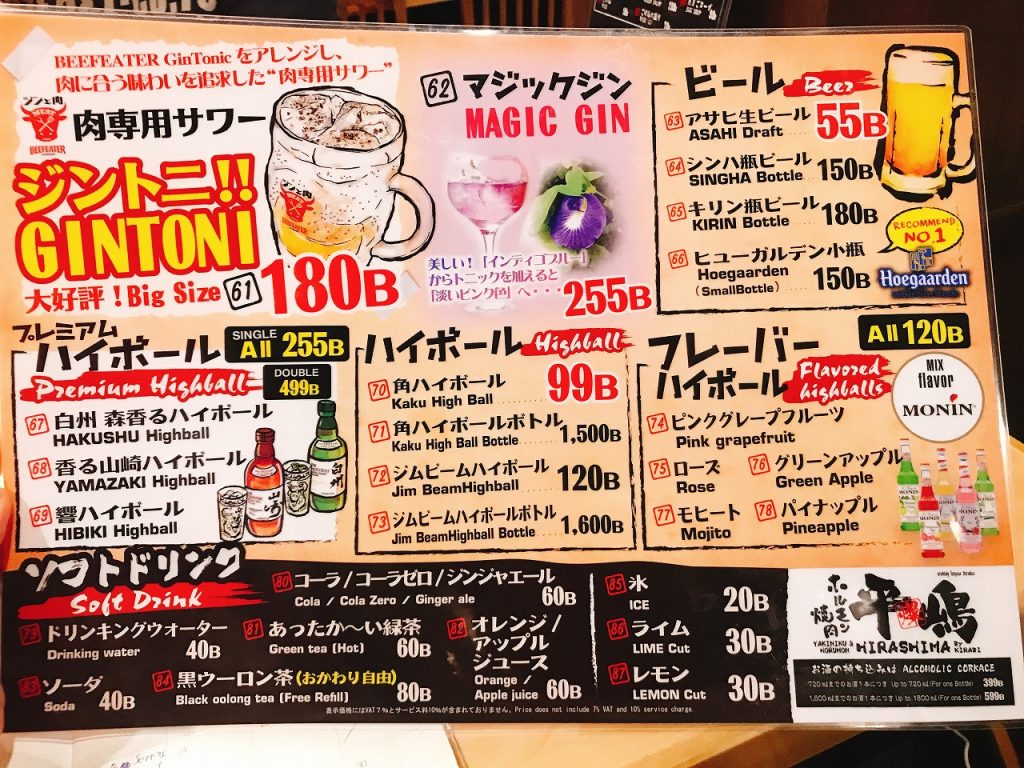 BEEFEATER GinTonic をアレンジし、
肉に合う味わいを追求した“肉専用サワー”
ジンと肉
MEAT
BEEFEATER
肉専用サワー
ジントニ!!
GINTONi
大好評！Big Size 61 180B
62 マジックジン
MAGIC GIN
美しい！「インディゴブルー」
からトニックを加えると
「淡いピンク色」へ・・・ 255B
ビール Beer
63 アサヒ生ビール
ASAHI Draft 55B
64 シンハ瓶ビール
SINGHA Bottle 150B
65 キリン瓶ビール
KIRIN Bottle 180B
66 ヒューガルデン小瓶
Hoegaarden
(SmallBottle) 150B
RECOMMEND
NO.1
Hoegaarden
プレミアム
ハイボール
SINGLE
All 255B
Premium Highball
DOUBLE
499B
67 白州 森香るハイボール
HAKUSHU Highball
68 香る山崎ハイボール
YAMAZAKI Highball
69 響ハイボール
HIBIKI Highball
ハイボール Highball
70 角ハイボール
Kaku High Ball 99B
71 角ハイボールボトル
Kaku High Ball Bottle 1,500B
72 ジムビームハイボール
Jim BeamHighball 120B
73 ジムビームハイボールボトル
Jim BeamHighball Bottle 1,600B
フレーバー
ハイボール
All 120B
Flavored
highballs
MIX
flavor
MONIN
74 ピンクグレープフルーツ
Pink grapefruit
75 ローズ
Rose
76 グリーンアップル
Green Apple
77 モヒート
Mojito
78 パイナップル
Pineapple
ソフトドリンク
Soft Drink
79 ドリンキングウォーター
Drinking water 40B
80 コーラ / コーラゼロ / ジンジャエール
Cola / Cola Zero / Ginger ale 60B
81 あったか〜い緑茶
Green tea (Hot) 60B
82 オレンジ /
アップル
ジュース
Orange /
Apple juice 60B
83 ソーダ
Soda 40B
84 黒ウーロン茶(おかわり自由)
Black oolong tea [Free Refill] 80B
85 氷
ICE 20B
86 ライム
LIME Cut 30B
87 レモン
LEMON Cut 30B
表示価格にはVAT7％とサービス料10％が含まれておりません。Price does not include 7% VAT and 10% service charge.
ホルモン
焼肉
平嶋
YAKINIKU &
HORUMON
HIRASHIMA BY KIRABI
お酒の持ち込みは ALCOHOLIC CORKAGE
720mlまでのお酒1本につき Up to 720 ml (For one Bottle) 399B
1,800mlまでのお酒1本につき Up to 1800 ml (For one Bottle) 599B